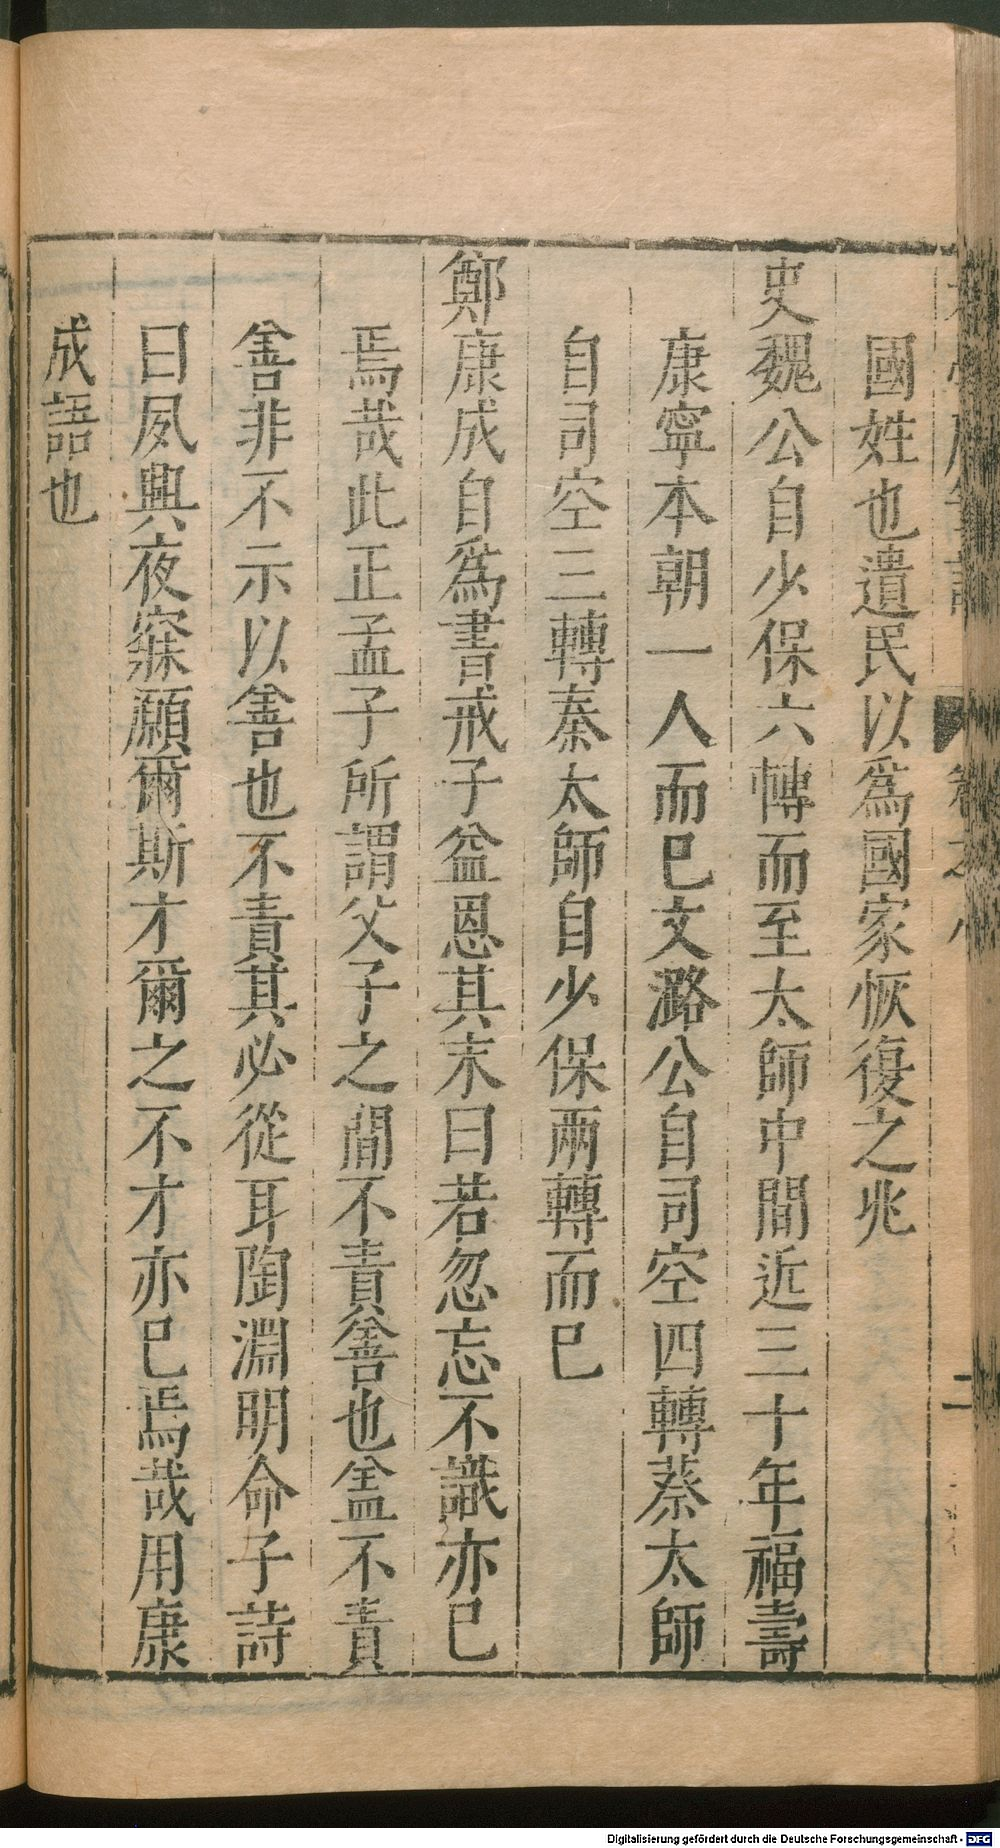 國姓也遺民以爲國家恢復之兆
史魏公自少保六轉而至太師中間近三十年福壽
康寧本朝一人而已文潞公自司空四轉蔡太師
自司空三轉秦太師自少保兩轉而已
鄭康成自爲書戒子益恩其末曰若忽忘不識亦已
焉哉此正孟子所謂父子之間不責善也盖不責
善非不示以善也不責其必從耳陶淵明命子詩
曰夙興夜寐願爾斯才爾之不才亦已焉哉用康
成語也
Digitalisierung gefördert durch die Deutsche Forschungsgemeinschaft - DFG